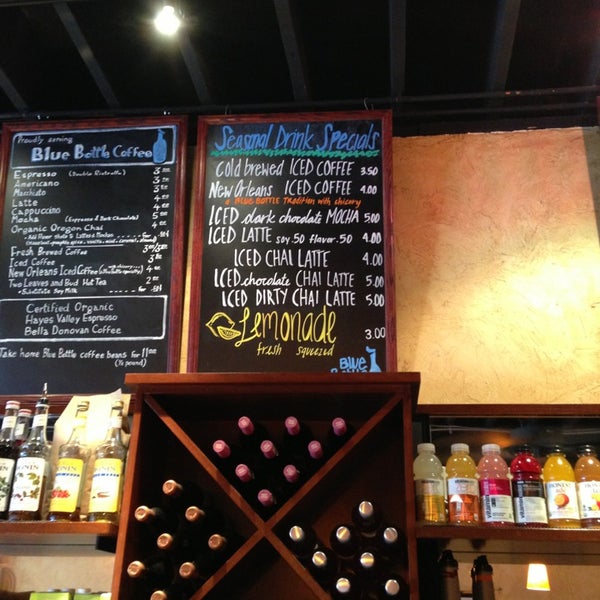 Proudly serving
Blue Bottle Coffee
Espresso (Double Ristretto)
Americano
Macchiato
Latte
Cappuccino
Mocha (Espresso & Dark Chocolate)
Organic Oregon Chai
Fresh Brewed Coffee
Iced Coffee
New Orleans Iced Coffee
Two Leaves and Bud Hot Tea
Substitute Soy Milk
Certified Organic
Hayes Valley Espresso
Bella Donovan Coffee
Take home Blue Bottle coffee beans for 11.00
(½ pound)
Seasonal Drink Specials
Cold brewed ICED COFFEE 3.50
New Orleans ICED COFFEE 4.00
a BLUE BOTTLE Tradition with chicory
ICED dark chocolate MOCHA 5.00
ICED LATTE soy .50 flavor .50 4.00
ICED CHAI LATTE 4.00
ICED chocolate CHAI LATTE 5.00
ICED DIRTY CHAI LATTE 5.00
Lemonade 3.00
fresh squeezed
BLUE
MONIN
MONIN
MONIN
HONEST